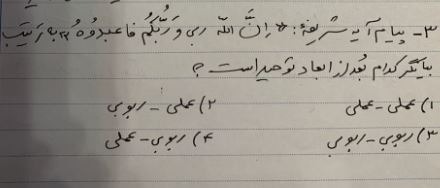 ۳- پیام آیه شریفهٔ: «اِنَّ اللّه ربی و رَبُّکُم فاعبدوُهُ» به ترتیب
بیانگر کدام بُعد از ابعاد توحید است؟
۱) عملی - عملی ۲) عملی - ربوبی
۳) ربوبی - ربوبی ۴) ربوبی - عملی